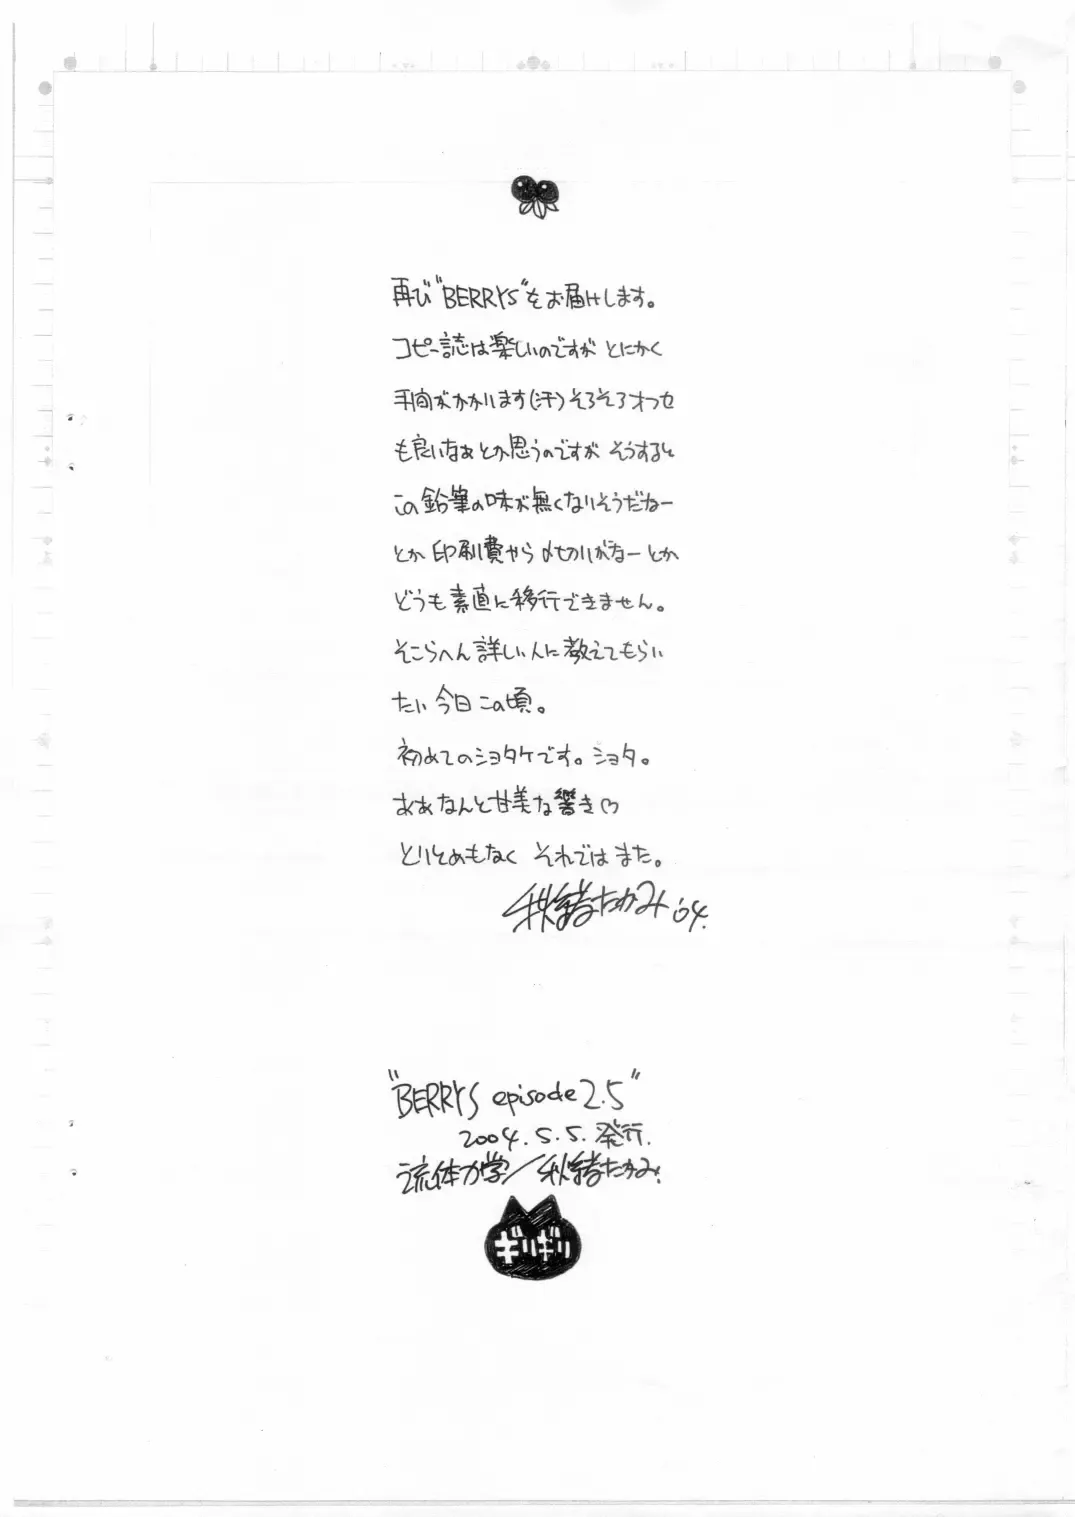 再び"BERRYS"をお届けします。
コピー誌は楽しいのですが とにかく
手間がかかります(汗)そろそろオフセ
も良いなぁとか思うのですが そうすると
この鉛筆の味が無くなりそうだねー
とか 印刷費やら〆切りがなー とか
どうも素直に移行できません。
そこらへん詳しい人に教えてもらい
たい今日この頃。
初めてのショタケです。ショタ。
ああなんと甘美な響き♡
とりとめもなく それではまた。
秋緒たかみ '04.
"BERRYS episode2.5"
2004.5.5.発行.
流体力学/秋緒たかみ.
ギリギリ